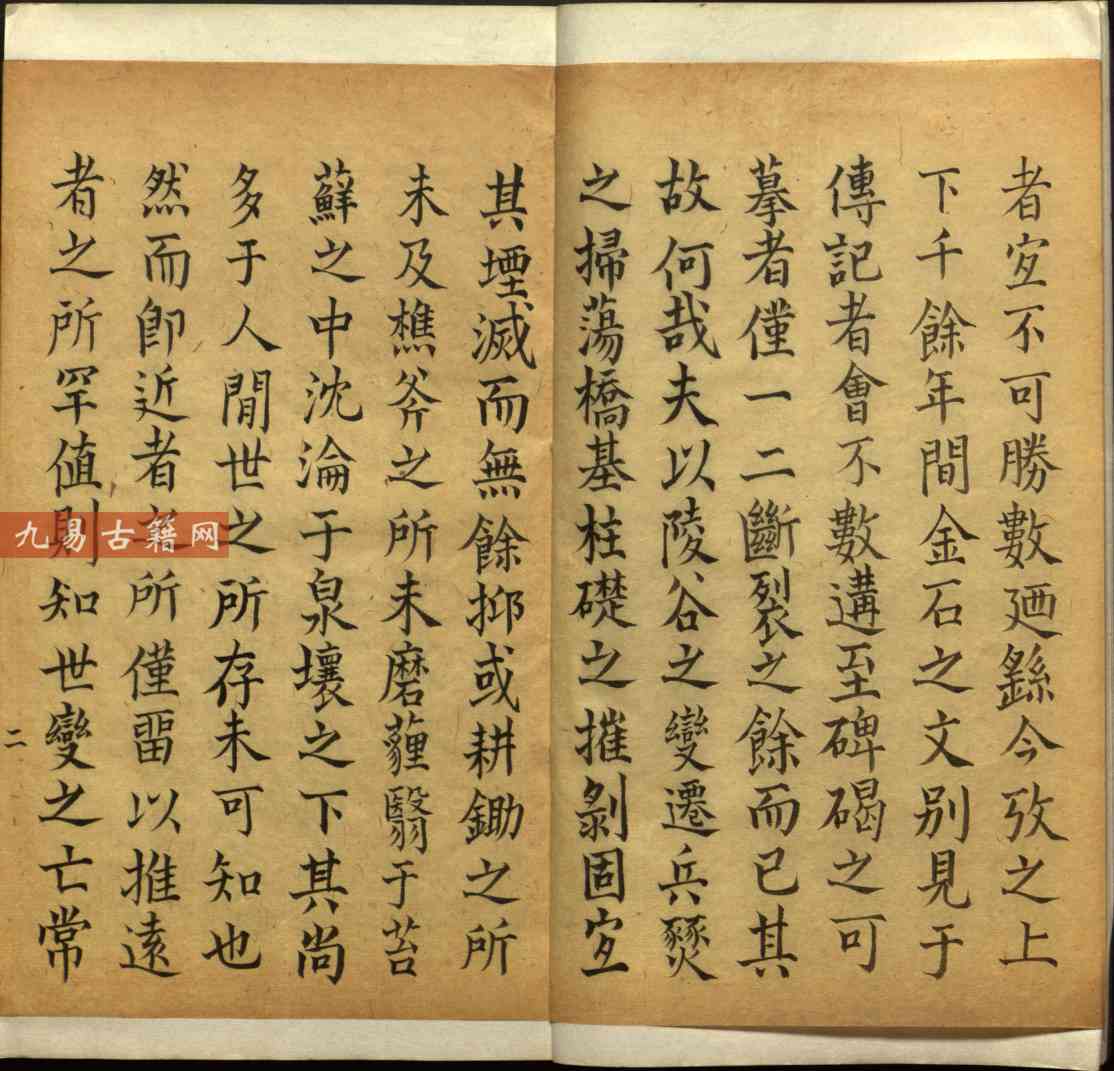 者宜不可勝數廼繇今攷之上
下千餘年間金石之文别見于
傳記者會不數遘至碑碣之可
摹者僅一二斷裂之餘而已其
故何哉夫以陵谷之變遷兵燹
之掃蕩橋基柱礎之摧剝固宜
其堙滅而無餘抑或耕鋤之所
未及樵斧之所未磨薶翳于苔
蘚之中沈淪于泉壤之下其尚
多于人閒世之所存未可知也
然而卽近者之所僅畱以推遠
者之所罕値則知世變之亡常
二
九易古籍网